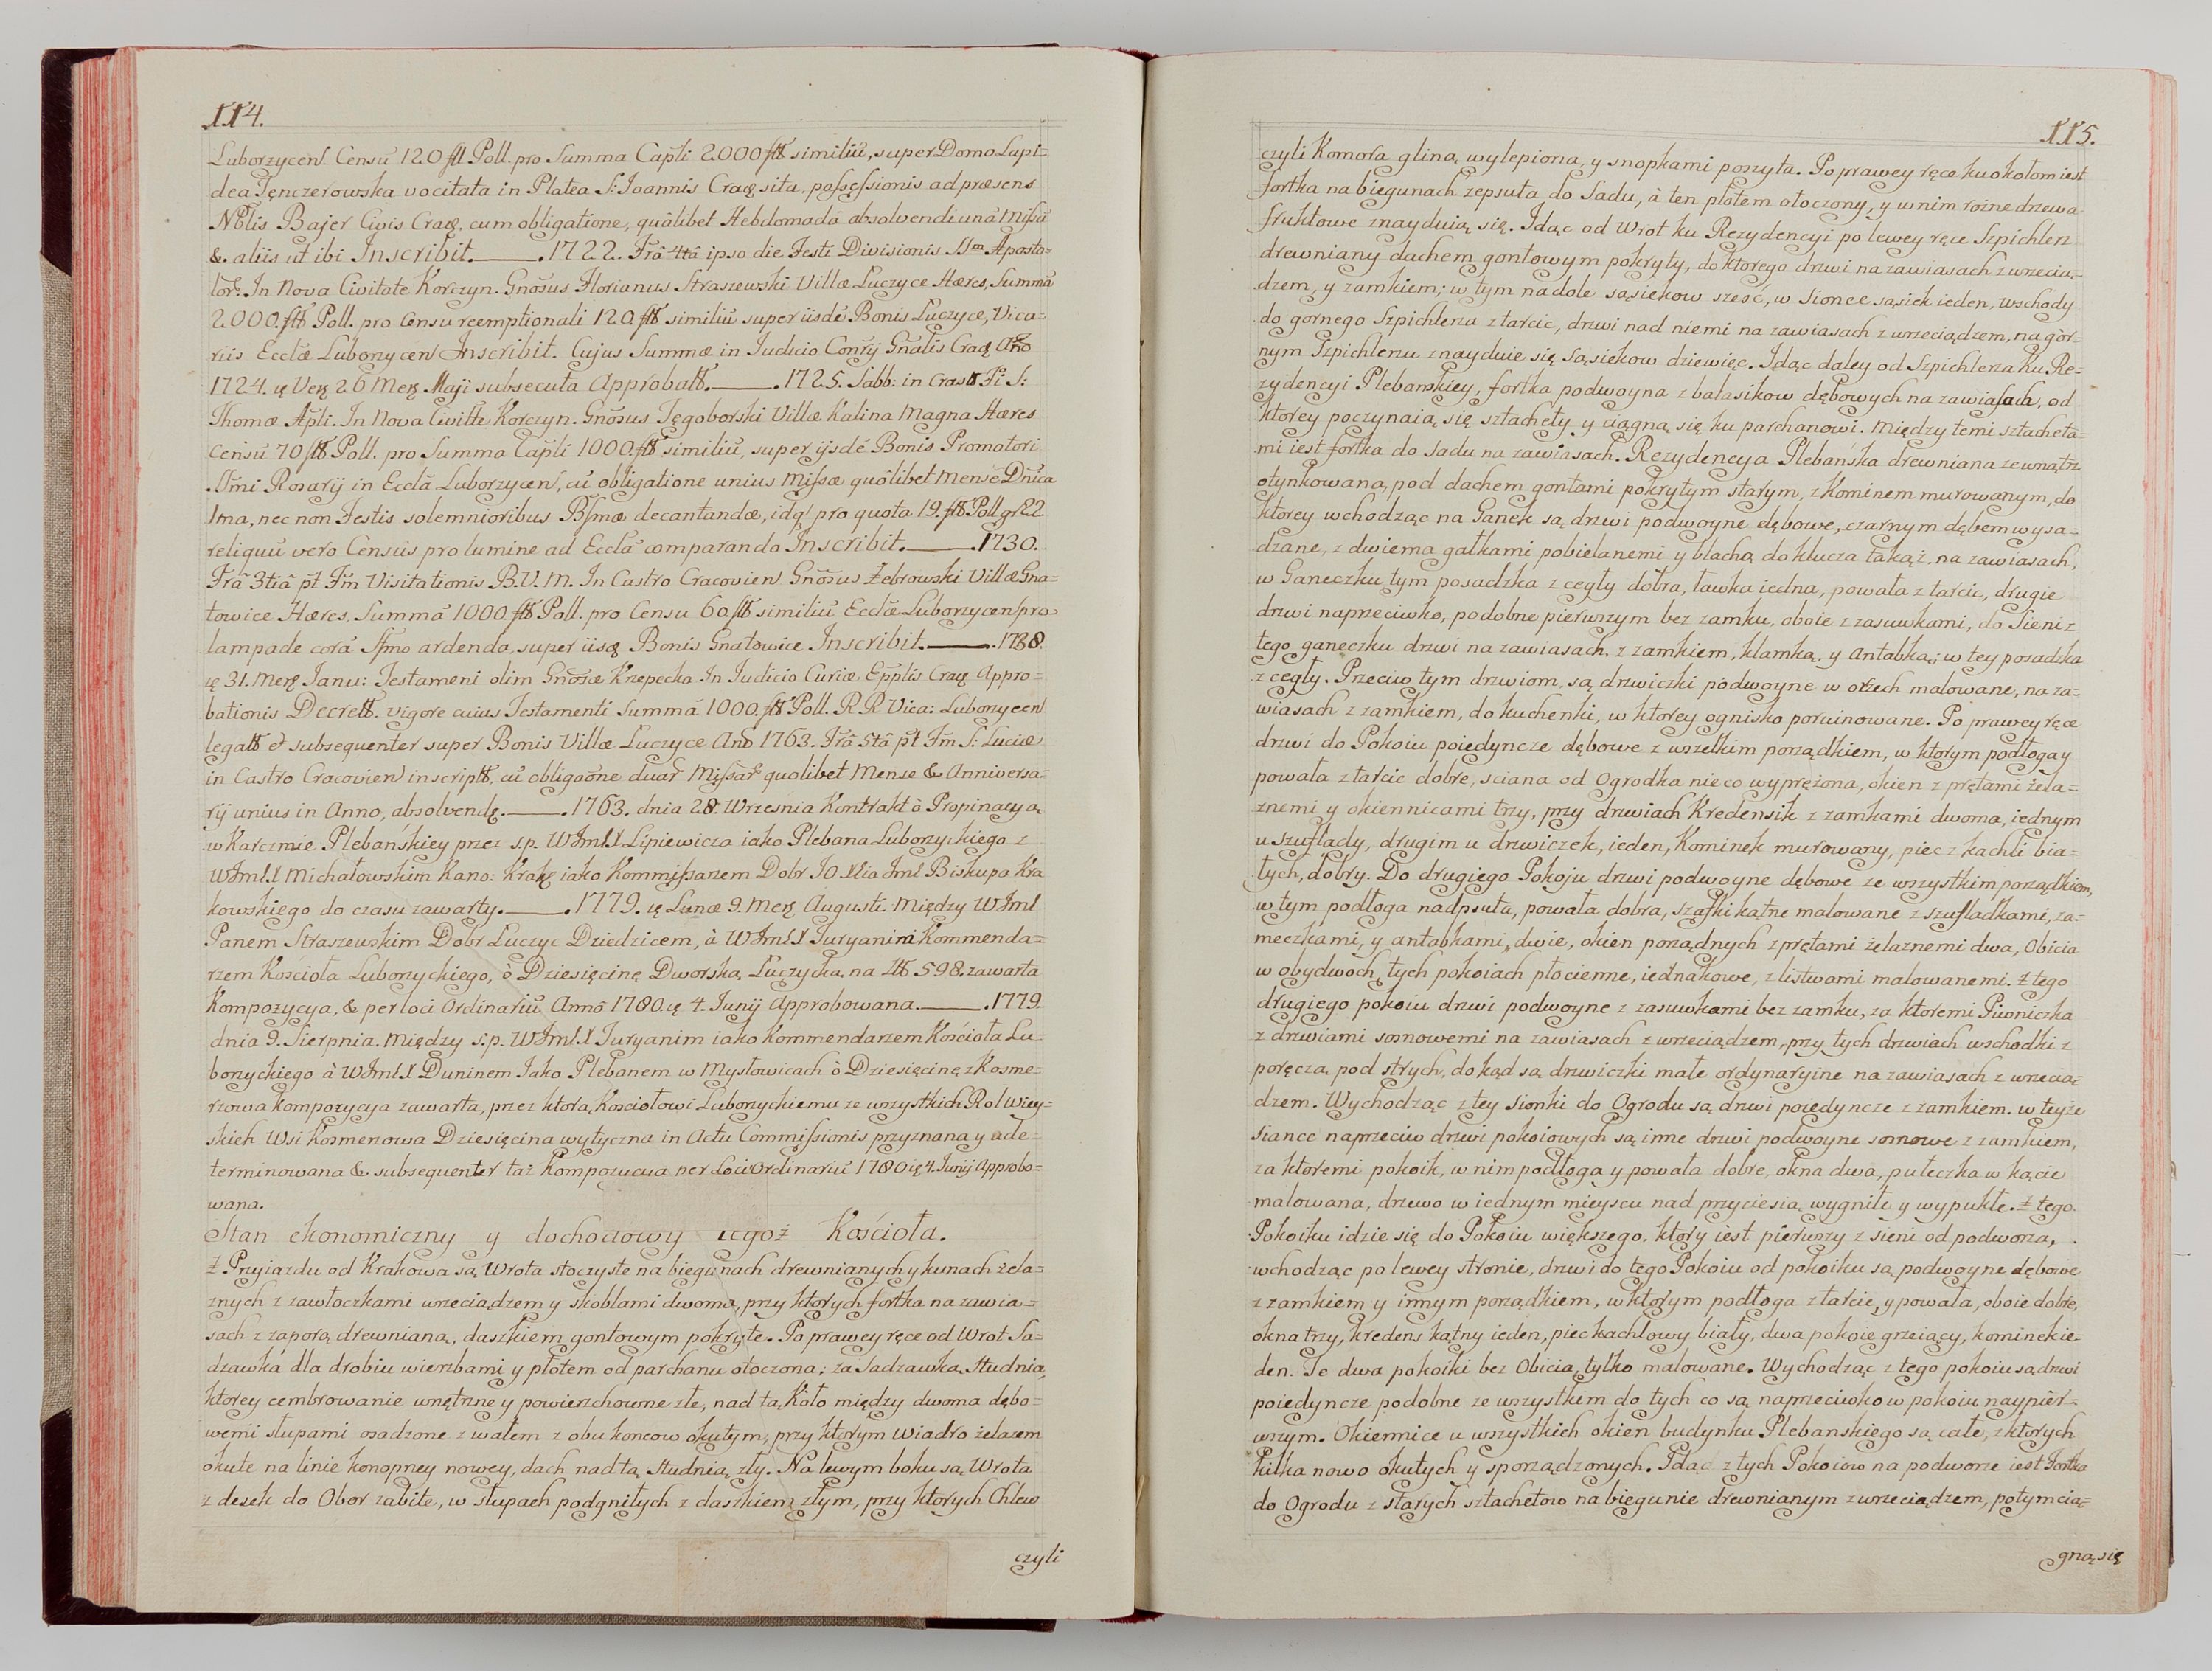 114.
Luborzycen̄. Censū 120 fłł Poll. pro Summa Capl̄i 2000 fłł similiū, super Domo Lapi=
dea Tęnczerowska vocitata in Platea S: Ioannis Crac̨ sita. possessionis ad præsens
Nob̄lis Bajer Civis Crac̨. cum obligatione, quâlibet Hebdomadâ absolvendi unâ Missâ
& aliis ut ibi Inscribit.———.1722. Frâ 4tâ ipso die Festi Divisionis SSm̄ Aposto=
lor̄. In Nova Civitate Korczyn. Gnōsus Florianus Straszewski Villæ Luczyce Hæres, Summā
2000. fłł Poll. pro Censu reemptionali 120 fłł similiū super iisdē Bonis Luczyce, Vica=
riis Eccl̄æ Luborzycen̄ Inscribit. Cujus Summæ in Iudicio Consr̄ij Gñalis Crac̨ Anō
1724. ę Veñ 26 Mens̨ Maji subsecuta Approbatt̄.———.1725. Sabb: in Crast̄ Fi S:
Thomæ Apl̄i. In Nova Civitt̄e Korczyn. Gnōsus Tęgoborski Villæ Kalina Magna Hæres
Censū 70 fłł Poll. pro Summa Capl̄i 1000. fłł similiū, super ijsdē Bonis Promotori
SSm̄i Rosarij in Eccl̄a Luborzycen̄, cū obligatione unius Missæ quôlibet Mense Dn̄ica
1ma, nec non Festis solemnioribus Bssm̄æ decantandæ, idq̨ pro quota 19. fłł Poll. gr 22
reliquū vero Censûs pro lumine ad Eccl̄ā comparando Inscribit.———.1730.
Frâ 3tiâ pt̄ Fm̄ Visitationis B.V.M. In Castro Cracovien̄ Gnōsus Żebrowski Villæ Gna=
towice Hæres. Summā 1000 fłł Poll. pro Censu 60 fłł similiū Eccl̄æ Luborzycen̄ pro
lampade corā SSm̄o ardenda. super iisq̨ Bonis Gnatowice Inscribit.———.1738.
ę 31. Mens̨ Ianu: Testameni olim Gnōsæ Krzepecka In Iudicio Curiæ Epp̄lis Crac̨ Appro=
bationis Decrett̄. vigore cuius Testamenti Summā 1000. fłł Poll. R.R Vica: Luborzycen̄
legatt̄ et subsequenter super Bonis Villæ Luczyce Anō 1763. Frâ 5tâ pt̄ Fm̄ S: Luciæ
in Castro Cracovien̄ inscriptt̄. cū obligaōne duar̄ Missar̄ quolibet Mense & Anniversa=
rij unius in Anno, absolvend̨.———.1763. dnia 28. Wrzesnia Kontrakt ò Propinacyą
w Karczmie Plebańskiey przez s.p. WJmłX Lipiewicza iako Plebana Luborzyckiego z
WJmłX Michałowskim Kano: Krak̨ iako Kommissarzem Dobr JO.Xcia Jmł Biskupa Kra
kowskiego do czasu zawarty.———.1779. ę Lunæ 9. Mens̨ Augusti Między WJmł
Panem Straszewskim Dobr Luczyc Dziedzicem, à WJmłX Juryanim Kommenda=
rzem Kościoła Luborzyckiego, ò Dziesięcinę Dworską Luczycką na Złł 598. zawarta
Kompozycya, & per loci Ordinariū Annô 1780. ę 4. Junij Approbowana.———.1779.
dnia 9. Sierpnia. Między s.p. WJmłX Juryanim iako Kommendarzem Kościoła Lu=
borzyckiego à WJmłX Duninem Iako Plebanem w Mysłowicach ò Dziesięcinę z Kosme=
rzowa kompozycya zawarta, przez którą Kościołowi Luborzyckiemu ze wszystkich Rol Wiey=
skich Wsi Kosmerzowa Dziesięcina wytyczna in Actu Commissionis przyznana y ade=
terminowana & subsequenter taż Kompozycya per Loci Ordinariū 1780 ię 4. Junij Approbo=
wana.
Stan ekonomiczny y dochodowy tegoż Kościoła.
Z Przyiazdu od Krakowa są Wrota stoczyste na biegunach drewnianych y kunach żela=
znych z zawłoczkami wrzeciądzem y skoblami dwoma, przy których fortka na zawia=
sach z zaporą drewnianą, daszkiem gontowym pokryte. Po prawey ręce od Wrot Sa=
dzawka dla drobiu wierzbami y płotem od parchanu otoczona; za Sadzawką Studnia,
którey cembrowanie wnętrzne y powierzchowne złe, nad tą Koło między dwoma dębo=
wemi słupami osadzone z wałem z obu koncow okutym, przy którym Wiadro żelazem
okute na linie konopney nowey, dach nad tą Studnią zły. Na lewym boku są Wrota
z desek do Obor zabite, w słupach podgniłych z daszkiem złym, przy których Chlew
czyli
115.
czyli Komora gliną wylepiona, y snopkami poszyta. Po prawey ręce ku okołom iest
fortka na biegunach zepsuta do Sadu, à ten płotem otoczony, y w nim rożne drzewa
fruktowe znayduią się. Idąc od Wrot ku Rezydencyi po lewey ręce Szpichlerz
drewniany dachem gontowym pokryty, do ktorego drzwi na zawiasach z wrzecią=
dzem, y zamkiem; w tym na dole sąsiekow sześć, w Sionce sąsiek ieden, wschody
do gornego Szpichlerza z tarcic, drzwi nad niemi na zawiasach z wrzeciądzem, na gòr=
nym Szpichlerzu znayduie się Sąsiekow dziewięć. Idąc daley od Szpichlerza ku Re=
zydencyi Plebańskiey, fortka podwoyna z balasikow dębowych na zawiasach, od
ktorey poczynaią się sztachety y ciągną się ku parchanowi. Między temi sztacheta=
mi iest fortka do Sadu na zawiasach. Rezydencya Plebańska drewniana zewnątrz
otynkowana, pod dachem gontami pokrytym starym, z Kominem murowanym, do
ktorey wchodząc na Ganek są drzwi podwoyne dębowe, czarnym dębem wysa=
dzane, z dwiema gałkami pobielanemi y blachą do klucza takąż, na zawiasach,
w Ganeczku tym posadzka z cegły dobra, ławka iedna, powała z tarcic, drugie
drzwi naprzeciwko, podobne pierwszym bez zamku, oboie z zasuwkami, do Sieni z
tego ganeczku drzwi na zawiasach, z zamkiem, klamką, y Antabką; w tey posadzka
z cegły. Przeciw tym drzwiom, są drzwiczki podwoyne w orzech malowane, na za=
wiasach z zamkiem, do kuchenki, w ktorey ognisko poruinowane. Po prawey ręce
drzwi do Pokoiu poiedyncze dębowe z wszelkim porządkiem, w ktorym podłoga y
powała z tarcic dobre, sciana od Ogrodka nieco wyprężona, okien z prętami żela=
znemi y okiennicami trzy, przy drzwiach Kredensik z zamkami dwoma, iednym
u szuflady, drugim u drzwiczek, ieden, Kominek murowany, piec z kachli bia=
łych, dobry. Do drugiego Pokoju drzwi podwoyne dębowe ze wszystkim porządkiem,
w tym podłoga nadpsuta, powała dobra, szafki kątne malowane z szufladkami, za=
meczkami, y antabkami, dwie, okien porządnych z prętami żelaznemi dwa, Obicia
w obydwoch tych pokoiach płocienne, iednakowe, z listwami malowanemi. Z tego
drugiego pokoiu drzwi podwoyne z zasuwkami bez zamku, za ktoremi Piwniczka
z drzwiami sosnowemi na zawiasach z wrzeciądzem, przy tych drzwiach wschodki z
poręczą pod strych, dokąd są drzwiczki małe ordynaryine na zawiasach z wrzecią=
dzem. Wychodząc z tey Sionki do Ogrodu są drzwi poiedyncze z zamkiem. w teyże
siance naprzeciw drzwi pokoiowych są inne drzwi podwoyne sosnowe z zamkiem,
za ktoremi pokoik, w nim podłoga y powała dobre, okna dwa, puteczka w kącie
malowana, drzewo w iednym mieyscu nad przyciesią wygniłe y wypukłe. Z tego
Pokoiku idzie się do Pokoiu większego, ktory iest pierwszy z sieni od podworza,
wchodząc po lewey stronie, drzwi do tego Pokoiu od pokoiku są podwoyne dębowe
z zamkiem y innym porządkiem, w ktorym podłoga z tarcic, y powała, oboie dobre,
okna trzy, kredens kątny ieden, piec kachlowy biały, dwa pokoie grzeiący, kominek ie=
den. Te dwa pokoiki bez Obicia, tylko malowane. Wychodząc z tego pokoiu są drzwi
poiedyncze podobne ze wszystkim do tych co są naprzeciwko w pokoiu naypier=
wszym. Okiennice u wszystkich okien budynku Plebanskiego są całe, z ktorych
kilka nowo okutych y sporządzonych. Idąc z tych Pokoiow na podworze iest Fortka
do Ogrodu z starych sztachetow na biegunie drewnianym z wrzeciądzem, potym cią=
gną się